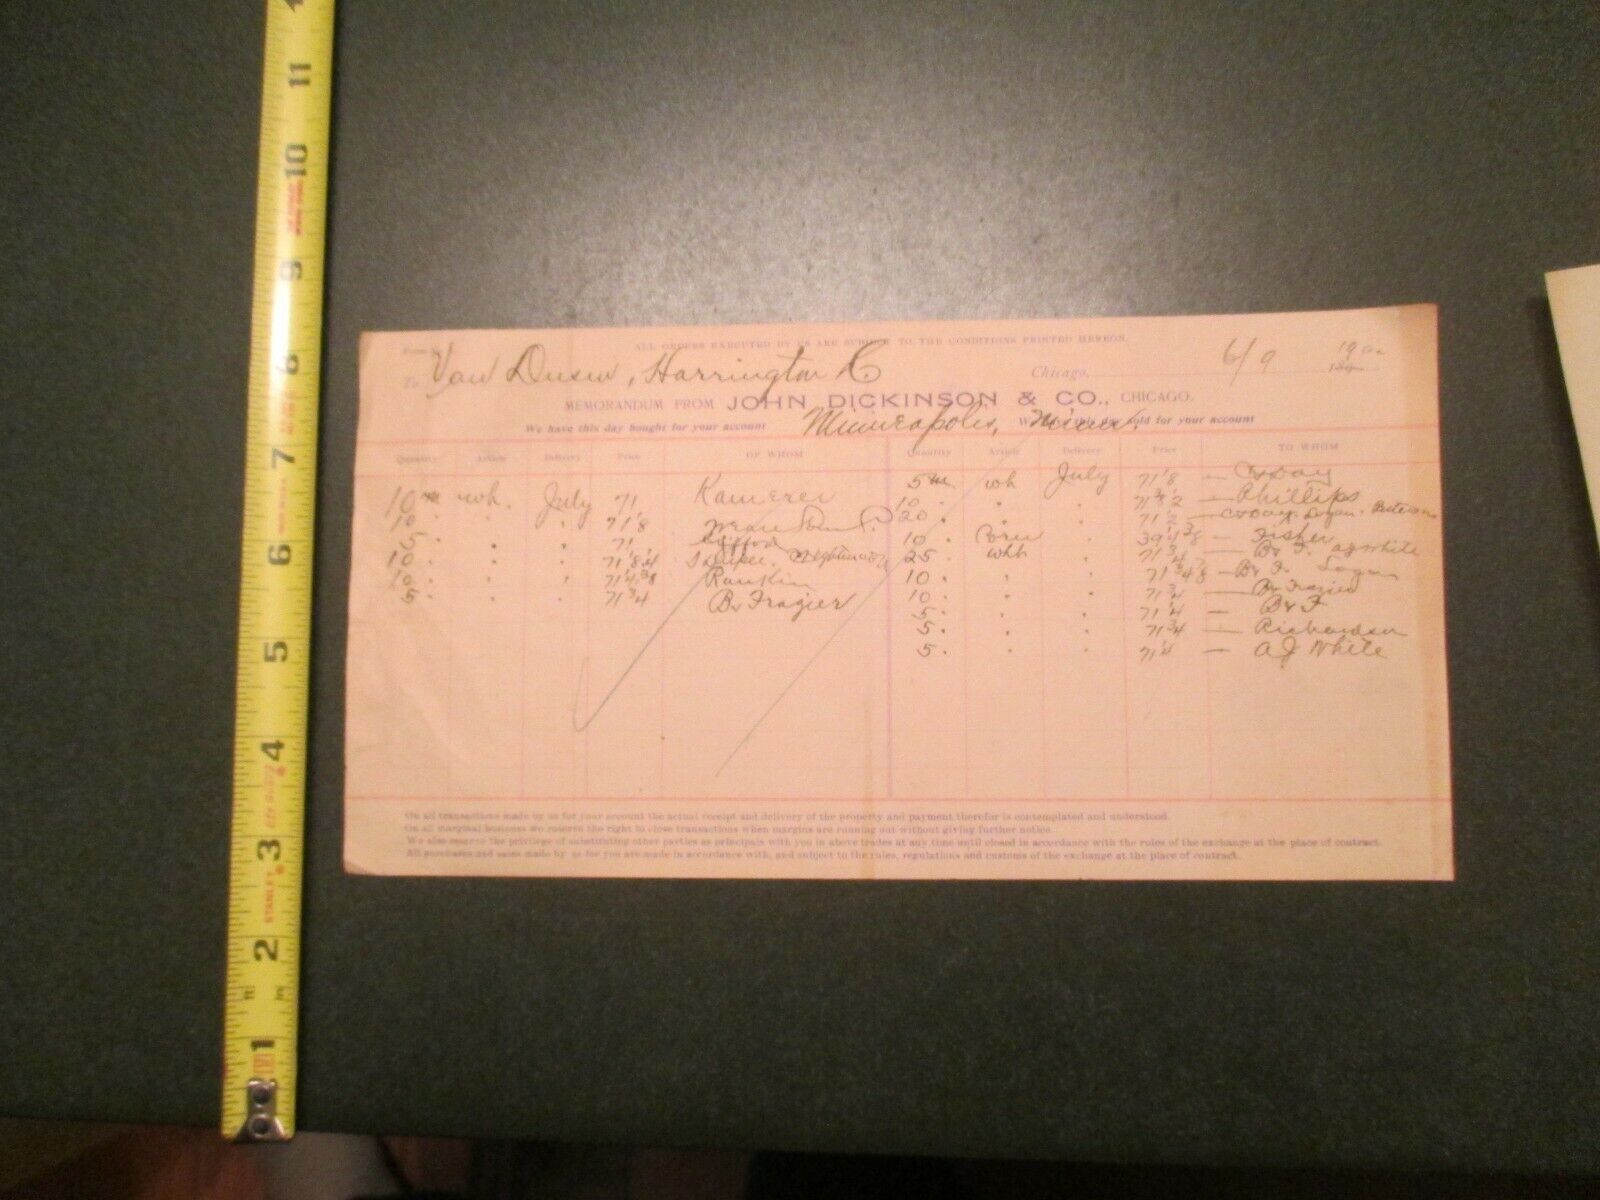 ALL ORDERS EXECUTED BY US ARE SUBJECT TO THE CONDITIONS PRINTED HEREON.
To Van Dusen, Harrington C
Chicago, 6/9 190
MEMORANDUM FROM JOHN DICKINSON & CO., CHICAGO.
Minneapolis, Minn.
We have this day bought for your account
We have this day sold for your account
Quantity Article Delivery Price OF WHOM Quantity Article Delivery Price TO WHOM
10 m wh. July 71 Kamerer
10 " " 71 1/8
5 " " 71
10 " " 71 1/8 1/4
10 " " 71 1/4 3/8 Rankin
5 " " 71 3/4 B & Frazier
5 m wh July 71 1/8
10 " " Phillips
20 " " 71 1/2
10 " Fisher
25 " 71 3/4 B & F. AJ White
10 " " 71 3/4 7/8 B & F. Logan
10 " " 71 3/4 B & Frazier
5 " " 71 1/4 B & F
5 " " 71 3/4 Richardson
5 " " 71 1/4 AJ White
On all transactions made by us for your account the actual receipt and delivery of the property and payment therefor is contemplated and understood.
On all marginal business we reserve the right to close transactions when margins are running out without giving further notice.
We also reserve the privilege of substituting other parties as principals with you in above trades at any time until closed in accordance with the rules of the exchange at the place of contract.
All purchases and sales made by us for you are made in accordance with, and subject to the rules, regulations and customs of the exchange at the place of contract.
11
10
9
8
7
6
5
4
3
STANLEY
2
ft in
1